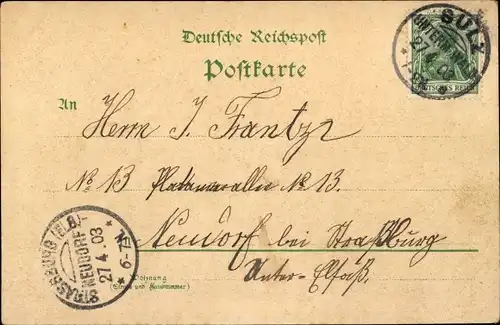 Deutsche Reichspost
Postkarte
SULZ
UNTERM WALD
27 4 03
DEUTSCHES REICH
An
Herrn J. Frantz
No 13 Platanenallee No 13.
Neudorf bei Straßburg
Unter-Elsaß.
Wohnung
(Straße und Hausnummer)
STRASSBURG (ELS)-
NEUDORF
27 4 03
6-7N